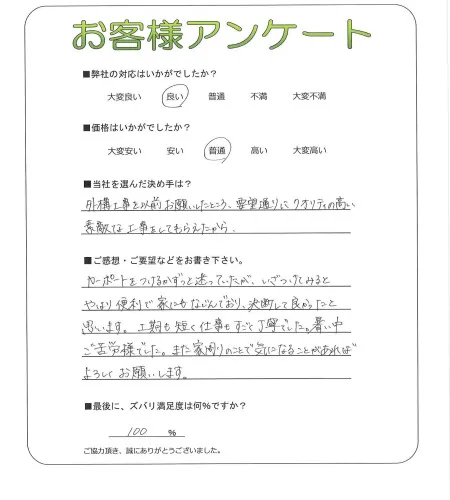 お客様アンケート
■弊社の対応はいかがでしたか?
大変良い 良い 普通 不満 大変不満
■価格はいかがでしたか?
大変安い 安い 普通 高い 大変高い
■当社を選んだ決め手は?
外構工事を以前お願いしたところ、要望通りにクオリティの高い
素敵な工事をしてもらえたから。
■ご感想・ご要望などをお書き下さい。
カーポートをつけるかずっと迷っていたが、いざつけてみると
やはり便利で家にもなじんでおり、決断して良かったと
思います。工期も短く仕事もすごく丁寧でした。暑い中
ご苦労様でした。また家周りのことで気になることがあれば
よろしくお願いします。
■最後に、ズバリ満足度は何%ですか?
100 %
ご協力頂き、誠にありがとうございました。